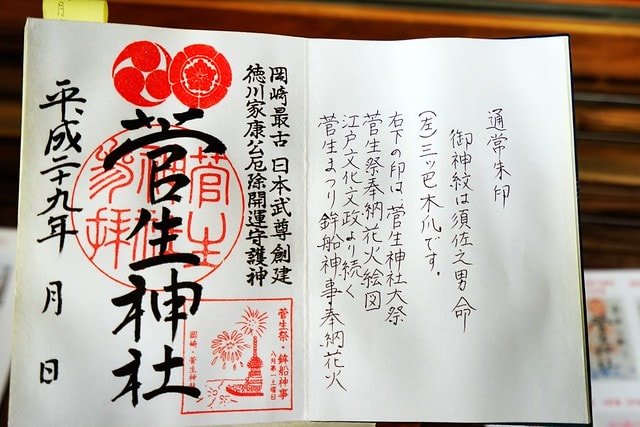 通常朱印
御神紋は須佐之男命
(左)三ッ巴木爪です。
右下の印は、菅生神社大祭
菅生祭奉納花火絵図
江戸文化文政より続く
菅生まつり鉾船神事奉納花火
岡崎最古 日本武尊創建
徳川家康公厄除開運守護神
菅生神社
菅生
参拝
菅生祭・鉾船神事
八月第一土曜日
岡崎・菅生神社
平成二十九年 月 日